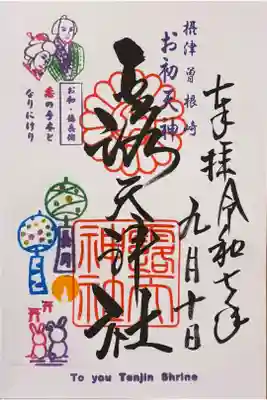 奉拝 令和七年
九月十日
摂津 曽根崎
お初天神
露天神社
お初・徳兵衛
恋の手本と
なりにけり
To you Tenjin Shrine